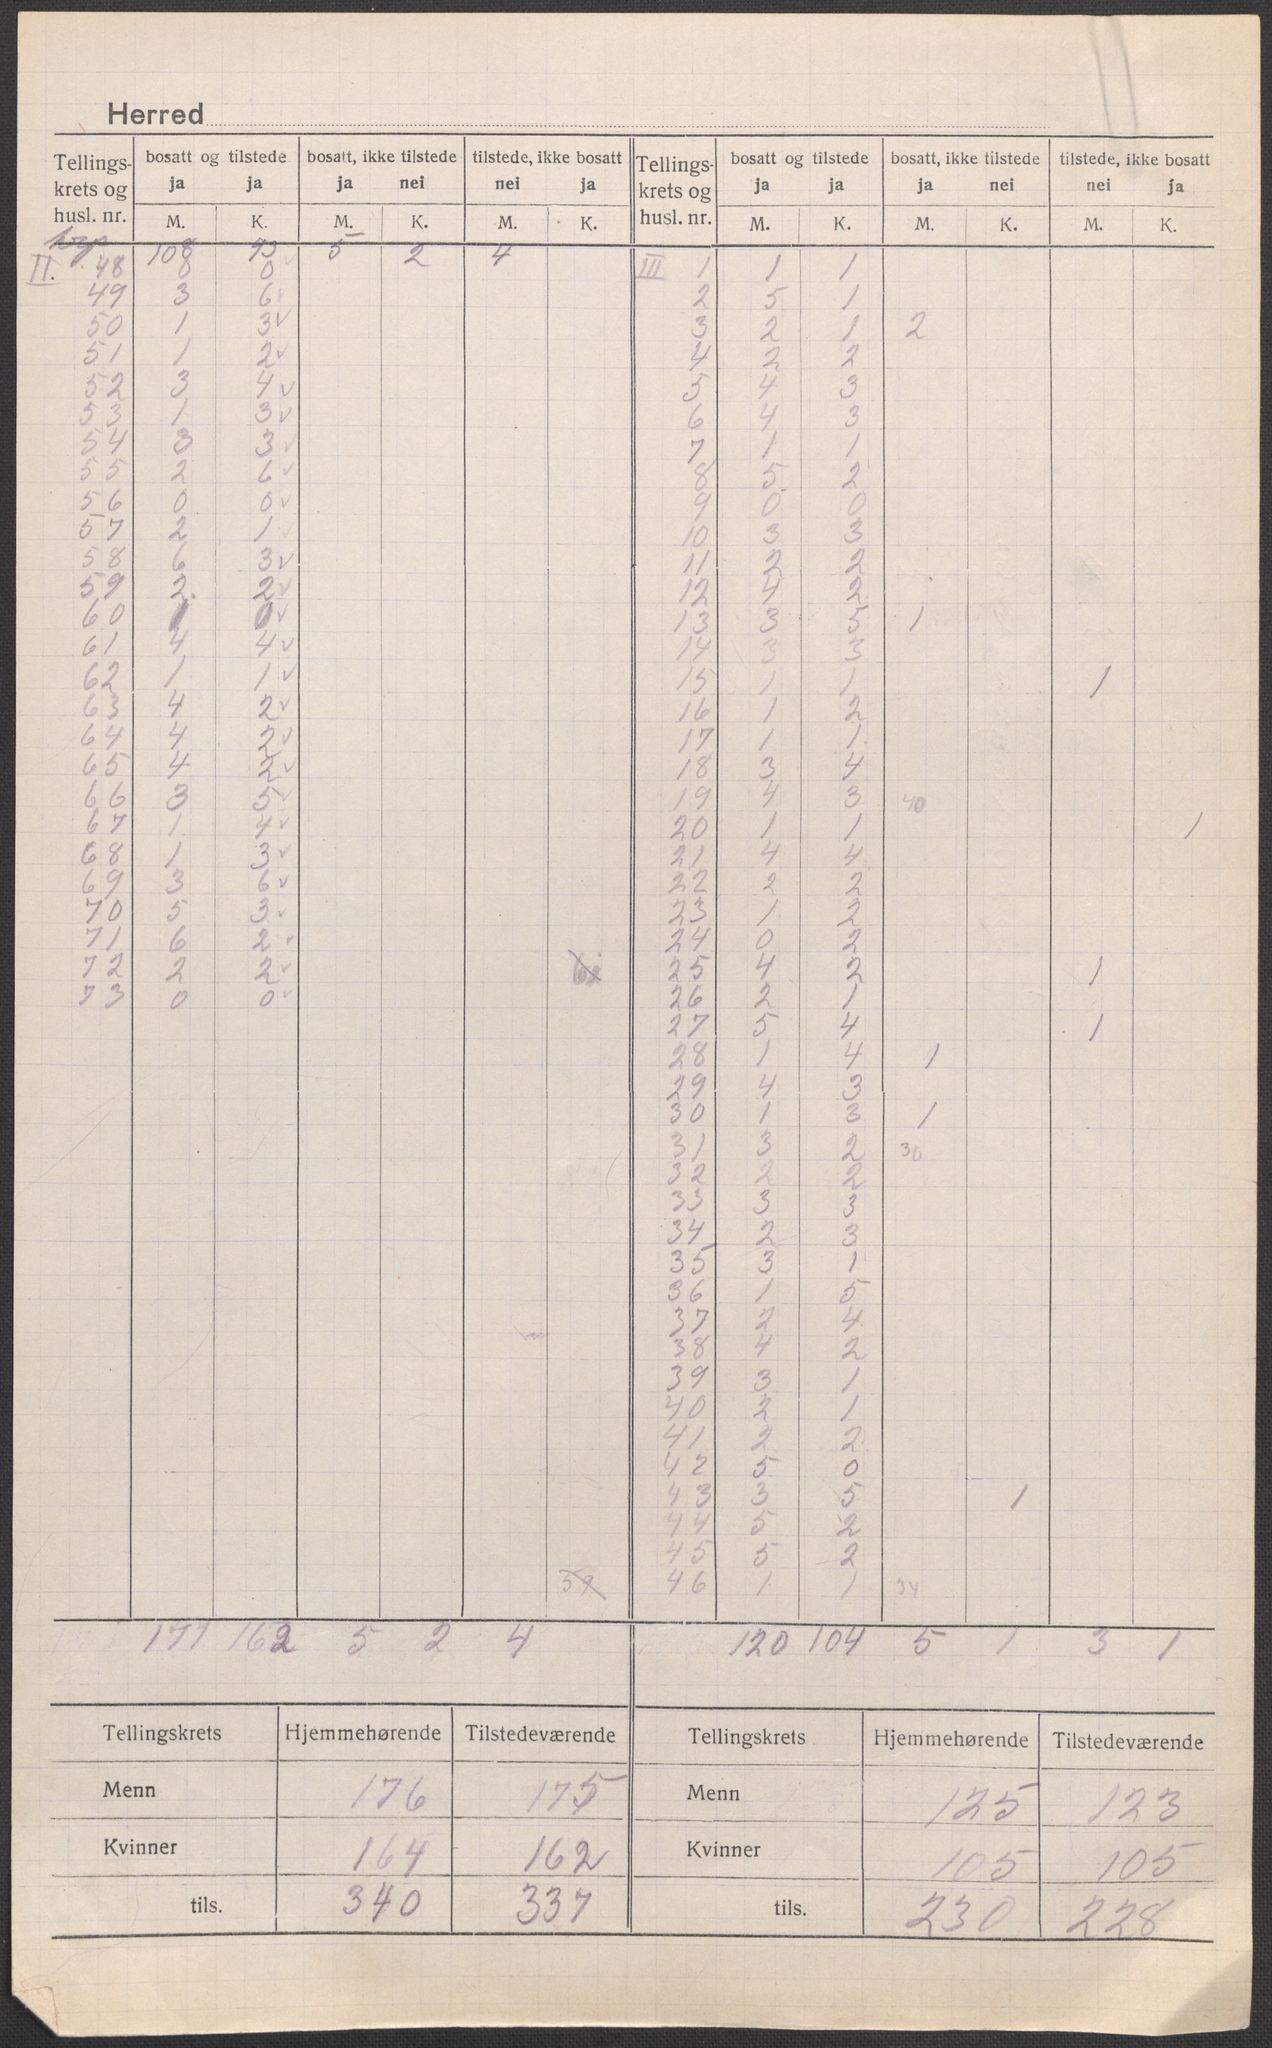 Herred
Tellings-krets og husl. nr. | bosatt og tilstede ja ja | bosatt, ikke tilstede ja nei | tilstede, ikke bosatt nei ja | Tellings-krets og husl. nr. | bosatt og tilstede ja ja | bosatt, ikke tilstede ja nei | tilstede, ikke bosatt nei ja
M. K. M. K. M. K. M. K. M. K. M. K.
108 93 5 2 4
II. 48 8 0 III 1 1 1
49 3 6 2 5 1
50 1 3 3 2 1 2
51 1 2 4 2 2
52 3 4 5 4 3
53 1 3 6 4 3
54 3 3 7 1 1
55 2 6 8 5 2
56 0 0 9 0 0
57 2 1 10 3 3
58 6 3 11 2 2
59 2 2 12 4 2
60 0 13 3 5 1
61 4 4 14 3 3
62 1 1 15 1 1 1
63 4 2 16 1 2
64 4 2 17 1 1
65 4 2 18 3 4
66 3 5 19 4 3 40
67 1 4 20 1 1 1
68 1 3 21 4 4
69 3 6 22 2 2
70 5 3 23 1 2
71 6 2 24 0 2
72 2 2 25 4 2 1
73 0 0 26 2 1
27 5 4 1
28 1 4 1
29 4 3
30 1 3 1
31 3 2 30
32 2 2
33 3 3
34 2 3
35 3 1
36 1 5
37 2 4
38 4 2
39 3 1
40 2 1
41 2 2
42 5 0
43 3 5 1
44 5 2
45 5 2
46 1 1 34
171 162 5 2 4 120 104 5 1 3 1
Tellingskrets Hjemmehørende Tilstedeværende Tellingskrets Hjemmehørende Tilstedeværende
Menn 176 175 Menn 125 123
Kvinner 164 162 Kvinner 105 105
tils. 340 337 tils. 230 228